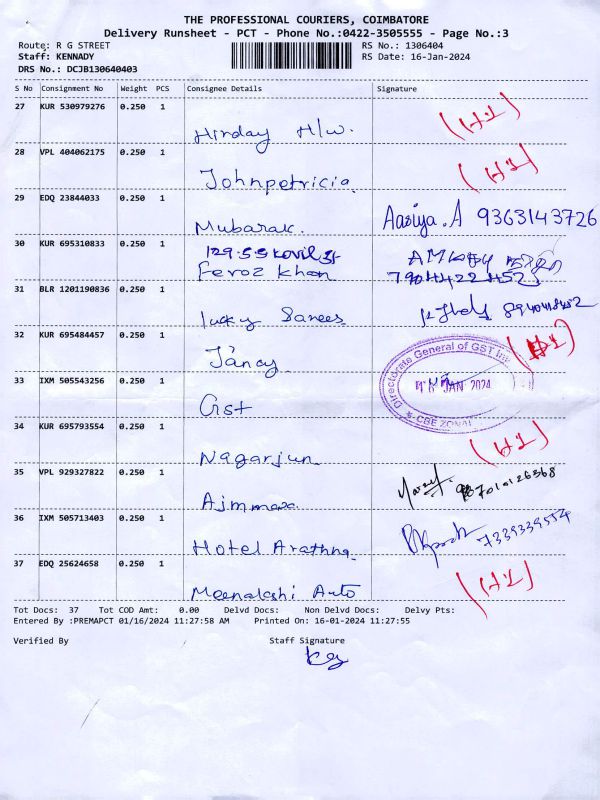 THE PROFESSIONAL COURIERS, COIMBATORE
Delivery Runsheet - PCT - Phone No.:0422-3505555 - Page No.:3
Route: R G STREET
Staff: KENNADY
DRS No.: DCJB130640403
RS No.: 1306404
RS Date: 16-Jan-2024
S No Consignment No Weight PCS Consignee Details Signature
27 KUR 530979276 0.250 1
Hirday H/w. (H1)
28 VPL 404062175 0.250 1
Johnpetricia (H1)
29 EDQ 23844033 0.250 1
Mubarak. Aasiya.A 9363143726
30 KUR 695310833 0.250 1
129.S.S Kovil St
Feroz Khan
31 BLR 1201190836 0.250 1
lucky Sarees
32 KUR 695484457 0.250 1
Jancy (H1)
33 IXM 505543256 0.250 1
Gst
Directorate General of GST
JAN 2024
CBE ZONAL
34 KUR 695793554 0.250 1
Nagarjun (H1)
35 VPL 929327822 0.250 1
36 IXM 505713403 0.250 1
Hotel Arathna 7339339554
37 EDQ 25624658 0.250 1
Meenakshi Auto (H1)
Tot Docs: 37 Tot COD Amt: 0.00 Delvd Docs: Non Delvd Docs: Delvy Pts:
Entered By :PREMAPCT 01/16/2024 11:27:58 AM Printed On: 16-01-2024 11:27:55
Verified By Staff Signature